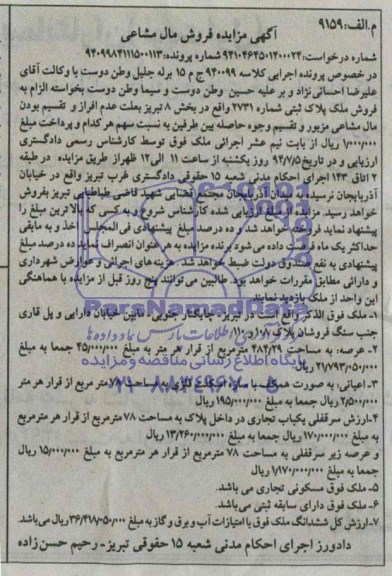 م.الف:۹۱۵۹
آگهی مزایده فروش مال مشاعی
شماره درخواست:۹۴۱۰۴۶۴۵۰۱۴۰۰۰۲۴ شماره پرونده:۹۴۰۹۹۸۴۱۱۱۵۰۰۱۱۳
در خصوص پرونده اجرایی کلاسه ۹۴۰۰۹۹ ج م ۱۵ برله جلیل وطن دوست با وکالت آقای
علیرضا احسانی نژاد و بر علیه حسین وطن دوست و سیما وطن دوست بخواسته الزام به
فروش ملک پلاک ثبتی شماره ۲۷۳۱ واقع در بخش ۸ تبریز بعلت عدم افراز و تقسیم بودن
مال مشاعی مزبور و تقسیم وجوه حاصله بین طرفین به نسبت سهم هر کدام و پرداخت مبلغ
۱/۰۰۰/۰۰۰ ریال از بابت نیم عشر اجرائی ملک فوق توسط کارشناس رسمی دادگستری
ارزیابی و در تاریخ ۹۴/۷/۵ روز یکشنبه از ساعت ۱۱ الی ۱۲ ظهراز طریق مزایده در طبقه
۲ اتاق ۱۴۳ اجرای احکام مدنی شعبه ۱۵ حقوقی دادگستری غرب تبریز واقع در خیابان
آذربایجان نرسیده به میدان آذربایجان مجتمع قضایی شهید قاضی طباطبایی تبریز بفروش
خواهد رسید. مزایده از مبلغ ارزیابی شده کارشناس شروع و به کسی که بالاترین مبلغ را
پیشنهاد نماید فروخته خواهد شد و ده درصد مبلغ پیشنهادی فی‌المجلس اخذ و به مابقی
حداکثر یک ماه فرصت داده می‌شود برنده مزایده به هر عنوان انصراف نماید ده درصد مبلغ
پیشنهادی به نفع صندوق دولت ضبط خواهد شد. هزینه‌های اجرائی و عوارض شهرداری
و دارائی مطابق مقررات خواهد بود. طالبین می‌توانند پنج روز قبل از مزایده با هماهنگی
این واحد از ملک بازدید نمایند
ParsNamadData
۱- ملک فوق الذکر واقع است در تبریز- جابکنار جنوبی- مابین خیابان دارایی و پل قاری
جنب سنگ فروشان پلاک
پایگاه اطلاع رسانی مناقصه و مزایده
۲- عرصه: به مساحت ۴۸۴/۲۹ مترمربع از قرار هر متر به مبلغ ۴۵/۰۰۰/۰۰۰ جمعا به مبلغ
۲۱/۷۹۳/۰۵۰/۰۰۰ ریال
۳- اعیانی: به صورت همکف با سازه مصالح بنائی به مساحت ۷۸ مترمربع از قرار هر متر
۲/۵۰۰/۰۰۰ ریال جمعا به مبلغ ۱۹۵/۰۰۰/۰۰۰ ریال
۴-ارزش سرقفلی یکباب تجاری در داخل پلاک به مساحت ۷۸ مترمربع از قرار هر مترمربع
به مبلغ ۱۷۰/۰۰۰/۰۰۰ ریال جمعا به مبلغ ۱۳/۲۶۰/۰۰۰/۰۰۰ ریال
و عرصه زیر سرقفلی به مساحت ۷۸ مترمربع از قرار هر مترمربع به مبلغ ۱۵/۰۰۰/۰۰۰ ریال
جمعا به مبلغ ۱/۱۷۰/۰۰۰/۰۰۰ ریال
۵- ملک فوق مسکونی تجاری می باشد.
۶- ملک فوق دارای سابقه ثبتی می‌باشد.
۷-ارزش کل ششدانگ ملک فوق با امتیازات آب و برق و گاز به مبلغ ۳۶/۴۱۸/۰۵۰/۰۰۰ ریال می‌باشد.
دادورز اجرای احکام مدنی شعبه ۱۵ حقوقی تبریز- رحیم حسن زاده